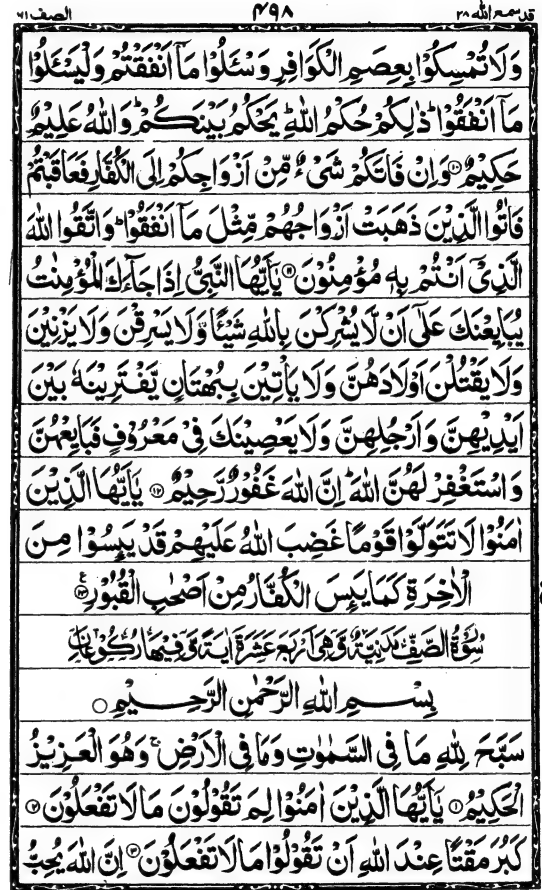 قد سمع الله ٢٨ ٤٩٨ الصف ٦١
وَلَا تُمْسِكُوْا بِعِصَمِ الْكَوَافِرِ وَسْـَٔلُوْا مَآ اَنْفَقْتُمْ وَلْيَسْـَٔلُوْا
مَآ اَنْفَقُوْا ؕ ذٰلِكُمْ حُكْمُ اللّٰهِ ؕ يَحْكُمُ بَيْنَكُمْ ؕ وَاللّٰهُ عَلِيْمٌ
حَكِيْمٌ ۝۱۰ وَاِنْ فَاتَكُمْ شَيْءٌ مِّنْ اَزْوَاجِكُمْ اِلَى الْكُفَّارِ فَعَاقَبْتُمْ
فَاٰتُوا الَّذِيْنَ ذَهَبَتْ اَزْوَاجُهُمْ مِّثْلَ مَآ اَنْفَقُوْا ؕ وَاتَّقُوا اللّٰهَ
الَّذِيْٓ اَنْتُمْ بِهٖ مُؤْمِنُوْنَ ۝۱۱ يٰٓاَيُّهَا النَّبِيُّ اِذَا جَآءَكَ الْمُؤْمِنٰتُ
يُبَايِعْنَكَ عَلٰٓى اَنْ لَّا يُشْرِكْنَ بِاللّٰهِ شَيْـًٔا وَّلَا يَسْرِقْنَ وَلَا يَزْنِيْنَ
وَلَا يَقْتُلْنَ اَوْلَادَهُنَّ وَلَا يَاْتِيْنَ بِبُهْتَانٍ يَّفْتَرِيْنَهٗ بَيْنَ
اَيْدِيْهِنَّ وَاَرْجُلِهِنَّ وَلَا يَعْصِيْنَكَ فِيْ مَعْرُوْفٍ فَبَايِعْهُنَّ
وَاسْتَغْفِرْ لَهُنَّ اللّٰهَ ؕ اِنَّ اللّٰهَ غَفُوْرٌ رَّحِيْمٌ ۝۱۲ يٰٓاَيُّهَا الَّذِيْنَ
اٰمَنُوْا لَا تَتَوَلَّوْا قَوْمًا غَضِبَ اللّٰهُ عَلَيْهِمْ قَدْ يَىِٕسُوْا مِنَ
الْاٰخِرَةِ كَمَا يَىِٕسَ الْكُفَّارُ مِنْ اَصْحٰبِ الْقُبُوْرِ ۝۱۳ ع
سُوْرَةُ الصَّفِّ مَدَنِيَّةٌ وَّهِيَ اَرْبَعَ عَشَرَةَ اٰيَةً وَّفِيْهَا رُكُوْعَانِ
بِسْمِ اللّٰهِ الرَّحْمٰنِ الرَّحِيْمِ ۝
سَبَّحَ لِلّٰهِ مَا فِي السَّمٰوٰتِ وَمَا فِي الْاَرْضِ ۚ وَهُوَ الْعَزِيْزُ
الْحَكِيْمُ ۝۱ يٰٓاَيُّهَا الَّذِيْنَ اٰمَنُوْا لِمَ تَقُوْلُوْنَ مَا لَا تَفْعَلُوْنَ ۝۲
كَبُرَ مَقْتًا عِنْدَ اللّٰهِ اَنْ تَقُوْلُوْا مَا لَا تَفْعَلُوْنَ ۝۳ اِنَّ اللّٰهَ يُحِبُّ